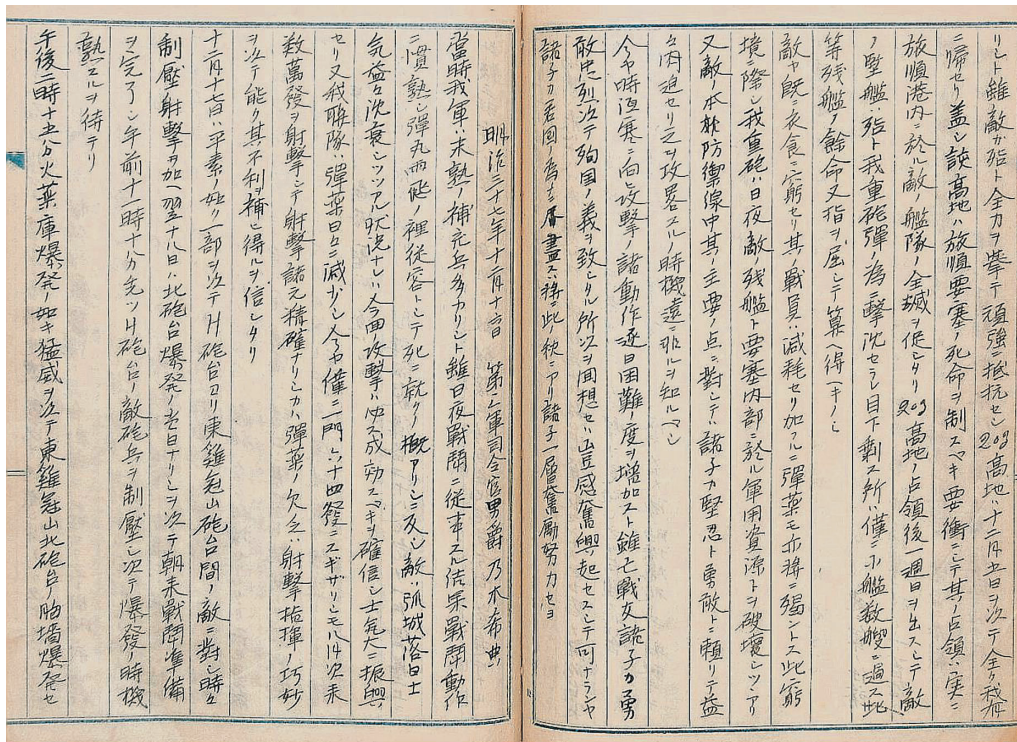 リシト雖敵カ殆ト全力ヲ挙テ頑強ニ抵抗セシ203高地ハ十二月五日ヲ以テ全ク我有
ニ帰セリ蓋シ該高地ハ旅順要塞ノ死命ヲ制スヘキ要衝ニシテ其ノ占領ハ実ニ
旅順港内ニ於ル敵ノ艦隊ノ全滅ヲ促シタリ203高地ノ占領後一週日ヲ出スシテ敵
ノ堅艦ハ殆ト我重砲弾ノ為ニ撃沈セラレ目下剰ス所ハ僅ニ小艦数艘ニ過ス此
等残艦ノ餘命又指ヲ屈シテ算ヘ得ヘキノミ
敵ヤ既ニ衣食ニ窮セリ其ノ戦員ハ減耗セリ加フルニ彈薬モ亦将ニ竭ントス此窮
境ニ際シ我重砲ハ日夜敵ノ残艦ト要塞内部ニ於ル軍用資源トヲ破壊シツヽアリ
又敵ノ本防禦線中其ノ主要ノ点ニ對シテハ諸子カ堅忍ト勇敢トニ頼リテ益
々肉迫セリ之ヲ攻略スルノ時機遠ニ非ルヲ知ルヘシ
今ヤ時沍寒ニ向ヒ攻撃ノ諸動作逐日困難ノ度ヲ増加スト雖亡戦友諸子カ勇
敢忠烈以テ殉国ノ義ヲ致シタル所以ヲ回想セハ豈感奮興起セスシテ可ナランヤ
諸子カ君国ノ為ニ盡スハ将ニ此ノ秋ニアリ諸子一層奮励努力セヨ
明治三十七年十二月十六日 第三軍司令官男爵乃木希典
當時我軍ハ未熟ノ補充兵多カリシト雖日夜戦鬪ニ従事スル結果戦鬪動作
ニ慣熟シ彈丸雨飛ノ裡従容トシテ死ニ就クノ概アリシニ反シ敵ハ孤城落日士
気益々沈衰シツヽアル状況ナレハ今回ノ攻撃ハ必ス成功スヘキヲ確信シ士気大ニ振興
セリ又我聯隊ハ彈薬日々ニ減少シ今ヤ僅ニ一門六十四發ニスギザリシモ以次来
数萬發ヲ射撃シテ射撃諸元精確ナリシカハ彈薬ノ欠乏ハ射撃指揮ノ巧妙
ヲ以テ能ク其不利ヲ補ヒ得ルヲ信シタリ
十二月十七日ハ平素ノ如ク一部ヲ以テH砲台ヨリ東雞冠山砲台間ノ敵ニ對シ時々
制壓射撃ヲ加ヘ翌十八日ハ北砲台爆発ノ当日ナリシヲ以テ朝来戦鬪準備
ヲ完了シ午前十一時十分先ツH砲台ノ敵砲兵ヲ制壓シ以テ爆發ノ時機
熟スルヲ待テリ
午後二時十五分火薬庫爆発ノ如キ猛威ヲ以テ東雞冠山北砲台ノ胸墻爆発セ